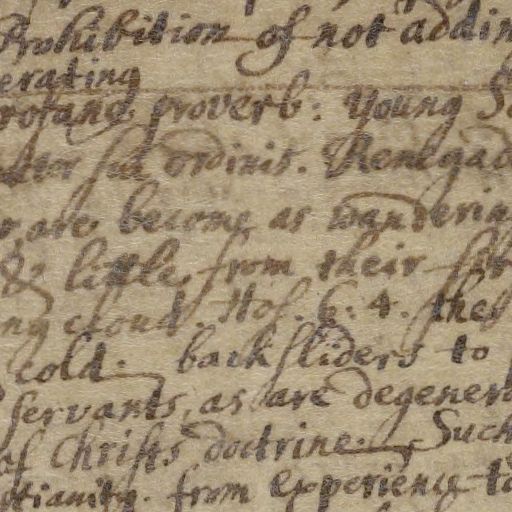 Prohibition of not addin
erating
rofane proverb: young Sa
ctor sui ordinis. Renegad
are become as wanderin
& little from their
ng cloud. Hos. 6. 4. they
cold. backsliders to
servants, as are degener
of Christs doctrine. Such
stianity. from experience to